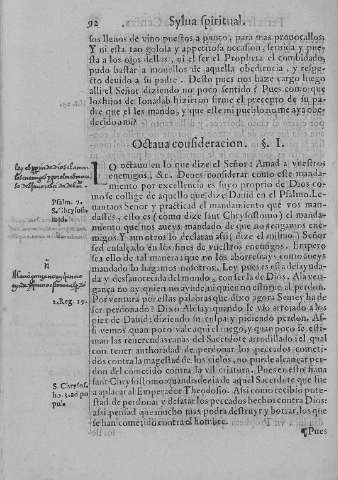 92 Sylua spiritual.
sos llenos de vino puestos a punto, para mas prouocallos;
Y ni esta tan golosa y appetitosa occasion, seruida y pue-
sta a los ojos dellos, ni el ser el Propheta el combidado,
pudo bastar a mouellos de aquella obediencia, y respe-
cto deuido a su padre. Desto pues nos haze cargo luego
alli el Señor diziendo no poco sentido: Pues como que
los hijos de Ionadab hizieron firme el precepto de su pa-
dre que el les mando, y que este mi pueblo no me aya obe-
decido a mi?
Octaua consideracion. §. I.
LO octauo en lo que dize el Señor: Amad a vuestros
enemigos, &c. Deues considerar como este manda-
miento por excellencia es suyo proprio de Dios co-
mo se collige de aquello que dize Dauid en el Psalmo. Le-
Psalm. 7.
uantaos Señor y practicad el mandamiento que vos man-
S. Chrysosto
dastes, esto es (como dize sant Chrysostomo) el manda-
miento que nos aueys mandado de que no tengamos ene-
migos Y aun otros lo declaran assi; dize el mismo, Señor
sed ensalçado en los fines de vuestros enemigos. Empero
sea ello de tal manera que no los aborrescays como aueys
mandado lo hagamos nosotros. Ley pues es esta desayuda-
da y desfauorecida del mundo, con ser la de Dios. A la ven-
gança no ay quien no ayude, ni quien no estorue al perdon.
Por ventura por estas palabras que dixo agora Semey ha de
2. Reg. 19.
ser perdonado? Dixo Abisay quando le vio arrojado a los
pies de Dauid: diziendo su culpa y pidiendo perdon. Af-
si vemos quan poco vale aqui el ruego, y quan poco se esti-
man las reuerendas ranas del Sacerdote arrodillado: el qual
con tener authoridad de perdonar los peccados cometi-
dos contra la magestad de los cielos, no puede alcançar per-
don del cometido contra la vil criatura. Pues en esto haria
S. Chrysost.
sant Chrysostomo quando dezia de aquel Sacerdote que fue
ho. 3. ad po
a aplacar al Emperador Theodosio. Assi como recibio pote-
pul.
stad de perdonar y desatar los pecados hechos contra Dios:
assi pensad que mucho mas podra destruyr y borrar, los que
se han cometido contra el hombre.
¶Pues